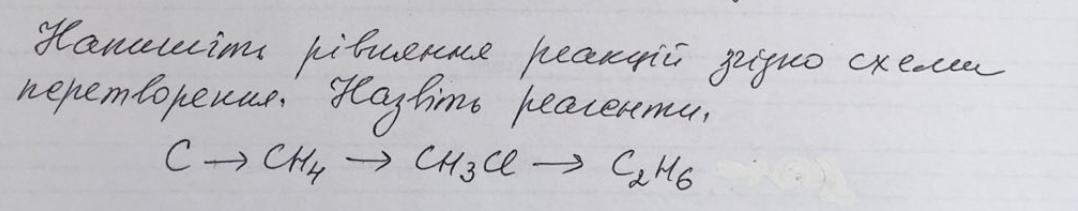 Напишіть рівняння реакцій згідно схеми
перетворення. Назвіть реагенти.
C → CH₄ → CH₃Cl → C₂H₆